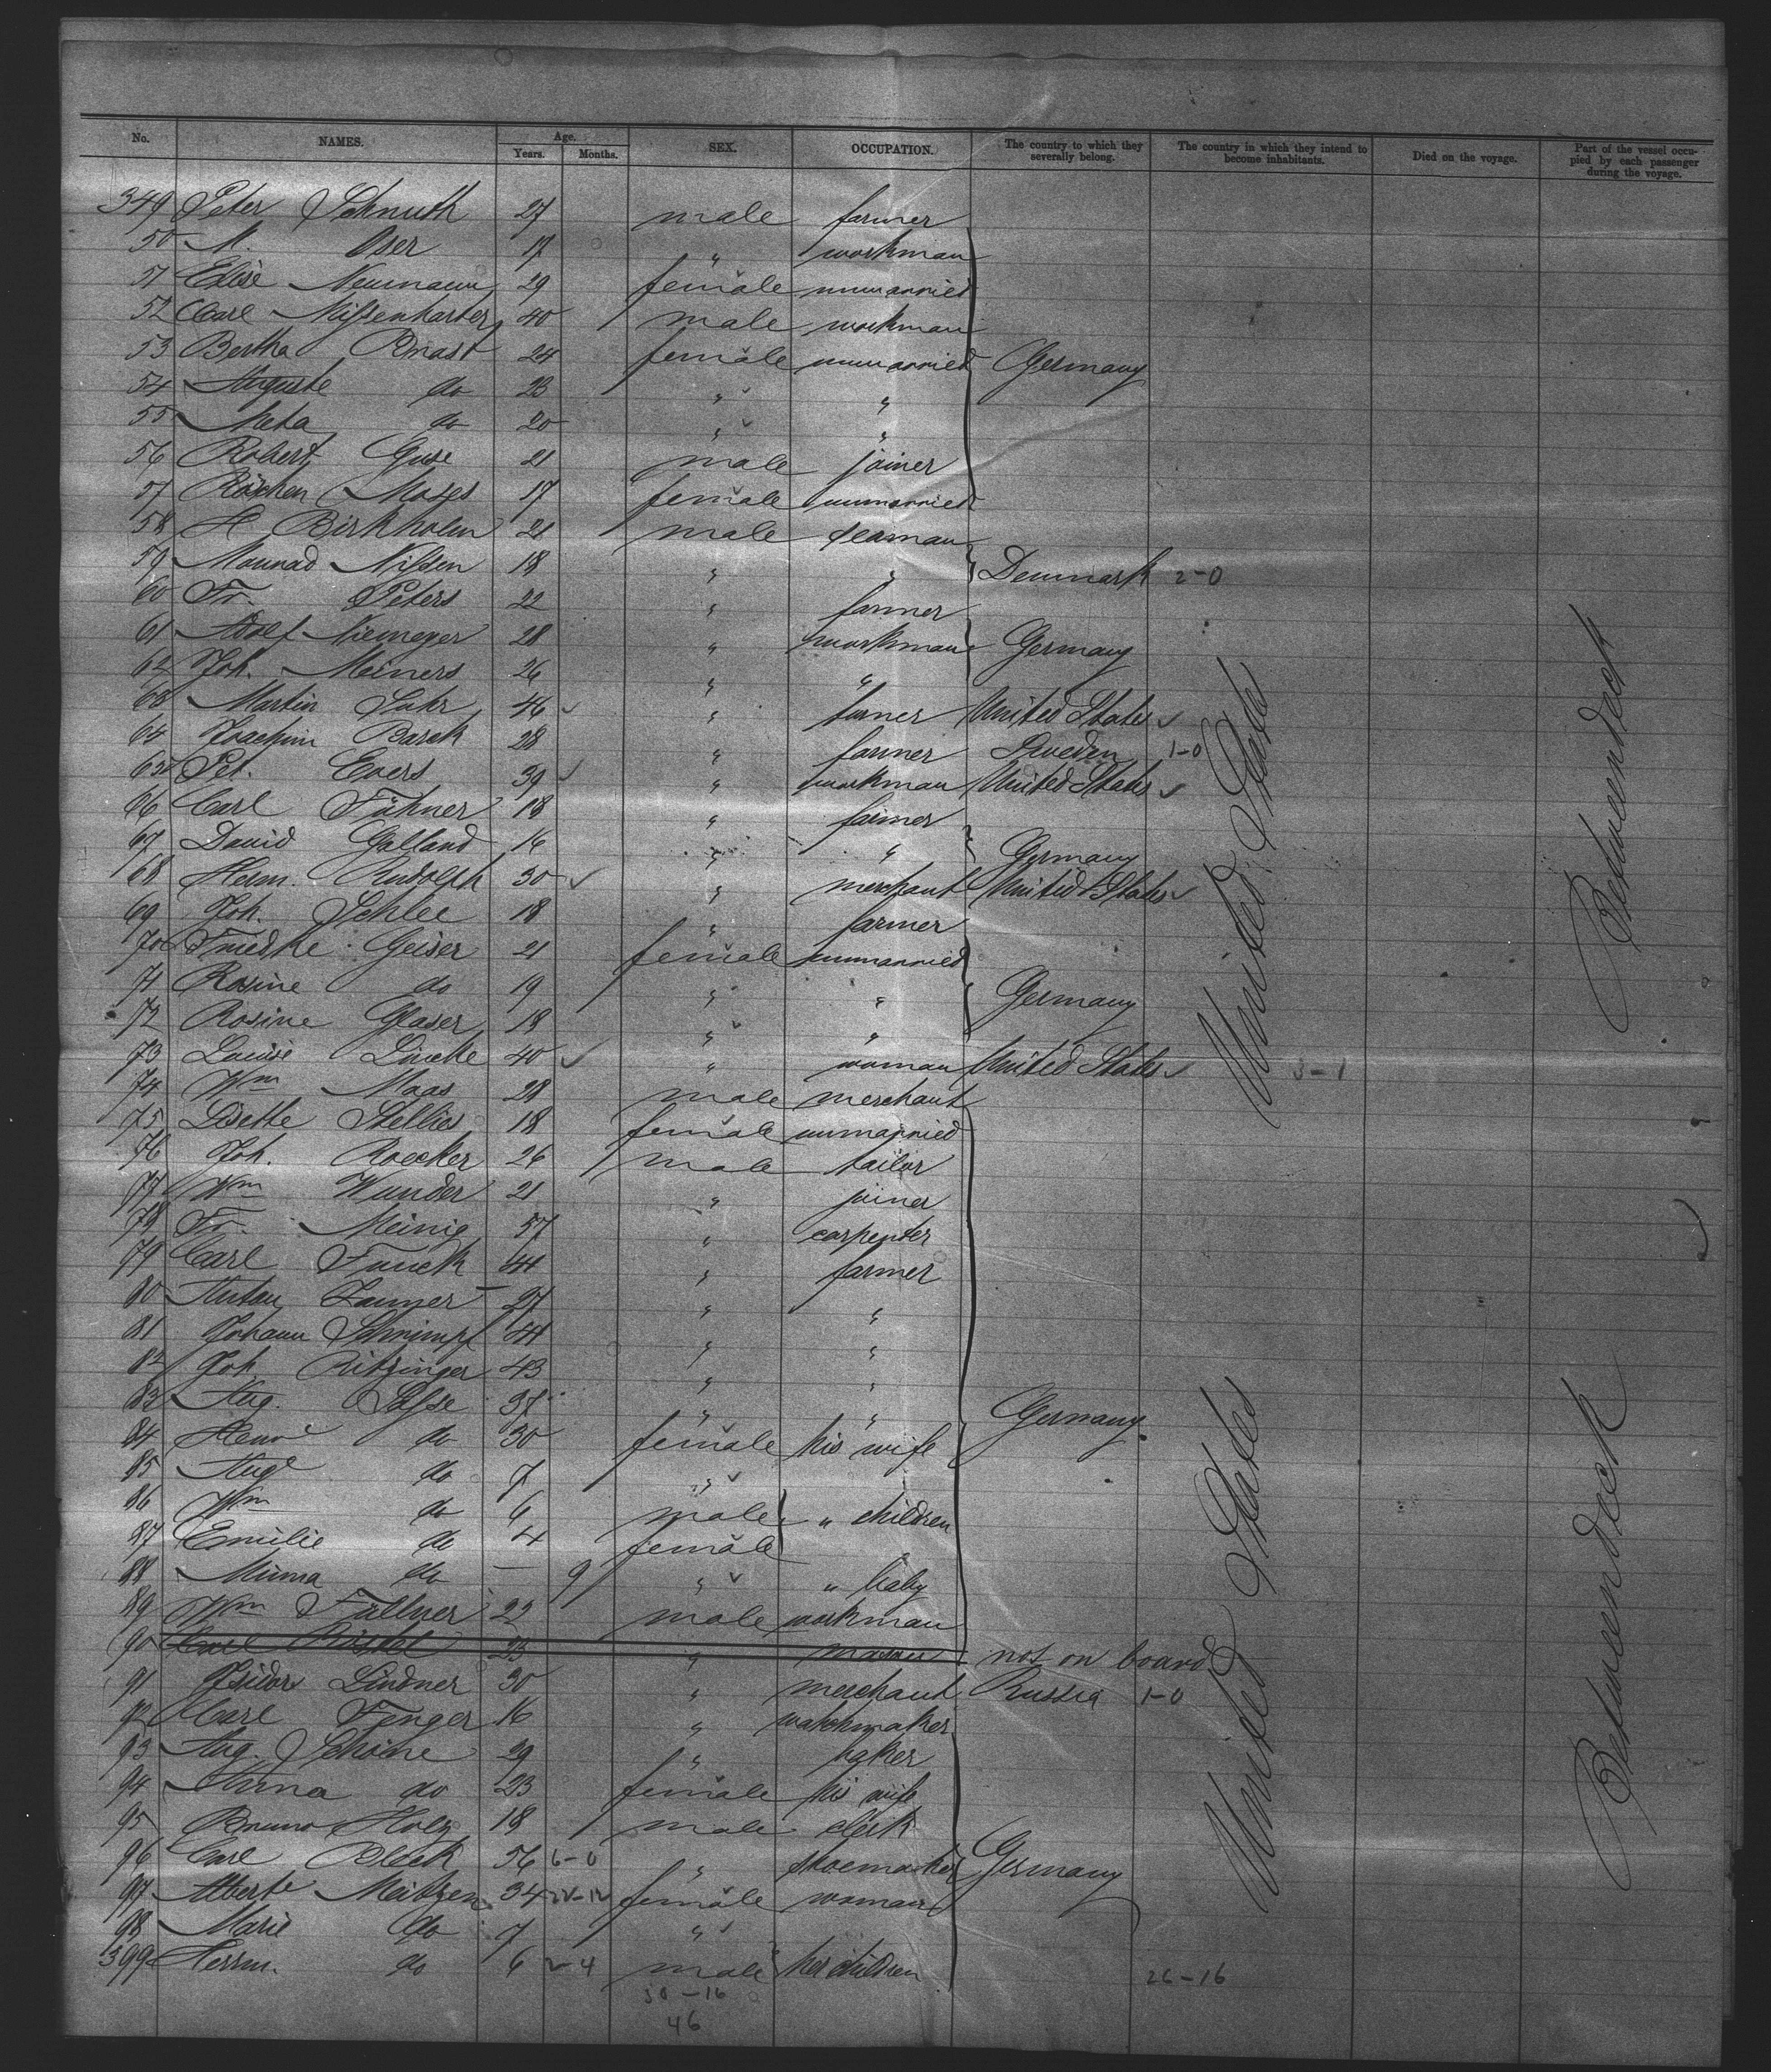 No. NAMES. Age. Years. Months. SEX. OCCUPATION. The country to which they severally belong. The country in which they intend to become inhabitants. Died on the voyage. Part of the vessel occupied by each passenger during the voyage.
349 Peter Schnuth 27 male farmer
50 M. Oser 17 " workman
51 Elise Neumann 29 female unmarried
52 Carl Missenharter 40 male workman
53 Bertha Pmast 24 female unmarried Germany
54 Auguste do 23 " "
55 Meta do 20 " "
56 Robert Guse 21 male joiner
57 Röschen Moses 17 female unmarried
58 H Birkholm 21 male seaman
59 Mounad Nissen 18 " " Denmark 2-0
60 Fr. Peters 22 " farmer
61 Adolf Niemeyer 28 " workman Germany
62 Joh. Meiners 26 " "
63 Martin Suhr 46 " turner United States
64 Joachim Barck 28 " farmer Sweden 1-0
65 Pet. Evers 39 " workman United States
66 Carl Fühner 18 " farmer
67 David Galland 16 " " Germany
68 Herm. Rudolph 30 " merchant United States
69 Joh. Schlee 18 " farmer
70 Friedke Geiser 21 female unmarried
71 Rosine do 19 " " Germany
72 Rosine Glaser 18 " "
73 Louise Lincke 40 " woman United States 3-1
74 Wm Maas 28 male merchant
75 Lisette Stellies 18 female unmarried
76 Joh. Roecker 26 male tailor
77 Wm Wunder 21 " joiner
78 Fr. Meinig 57 " carpenter
79 Carl Funck 44 " farmer
80 Anton 27 " "
81 Johann Schrimpf 44 " "
82 Joh. Ritzinger 43 " "
83 Aug. Sasse 37 " " Germany
84 Henre do 30 female his wife
85 Auge do 7 "
86 Wm do 6 male " children
87 Emilie do 4 female
88 Minna do — 9 " " baby
89 Wm Füllner 22 male workman
90 Carl 23 " mason not on board
91 Isidor Lindner 30 " merchant Russia 1-0
92 Carl Fenger 16 " watchmaker
93 Aug. Schöne 29 " baker
94 Anna do 23 female his wife
95 Bruno Holz 18 male clerk
96 Carl Bleck 56 6-0 " shoemaker Germany
97 Alberte Meitzen 34 22-12 female woman
98 Marie do 7 "
399 Herrm. do 6 2-4 male her children 26-16
30-16
46
United States
United States
Betweendeck
Betweendeck